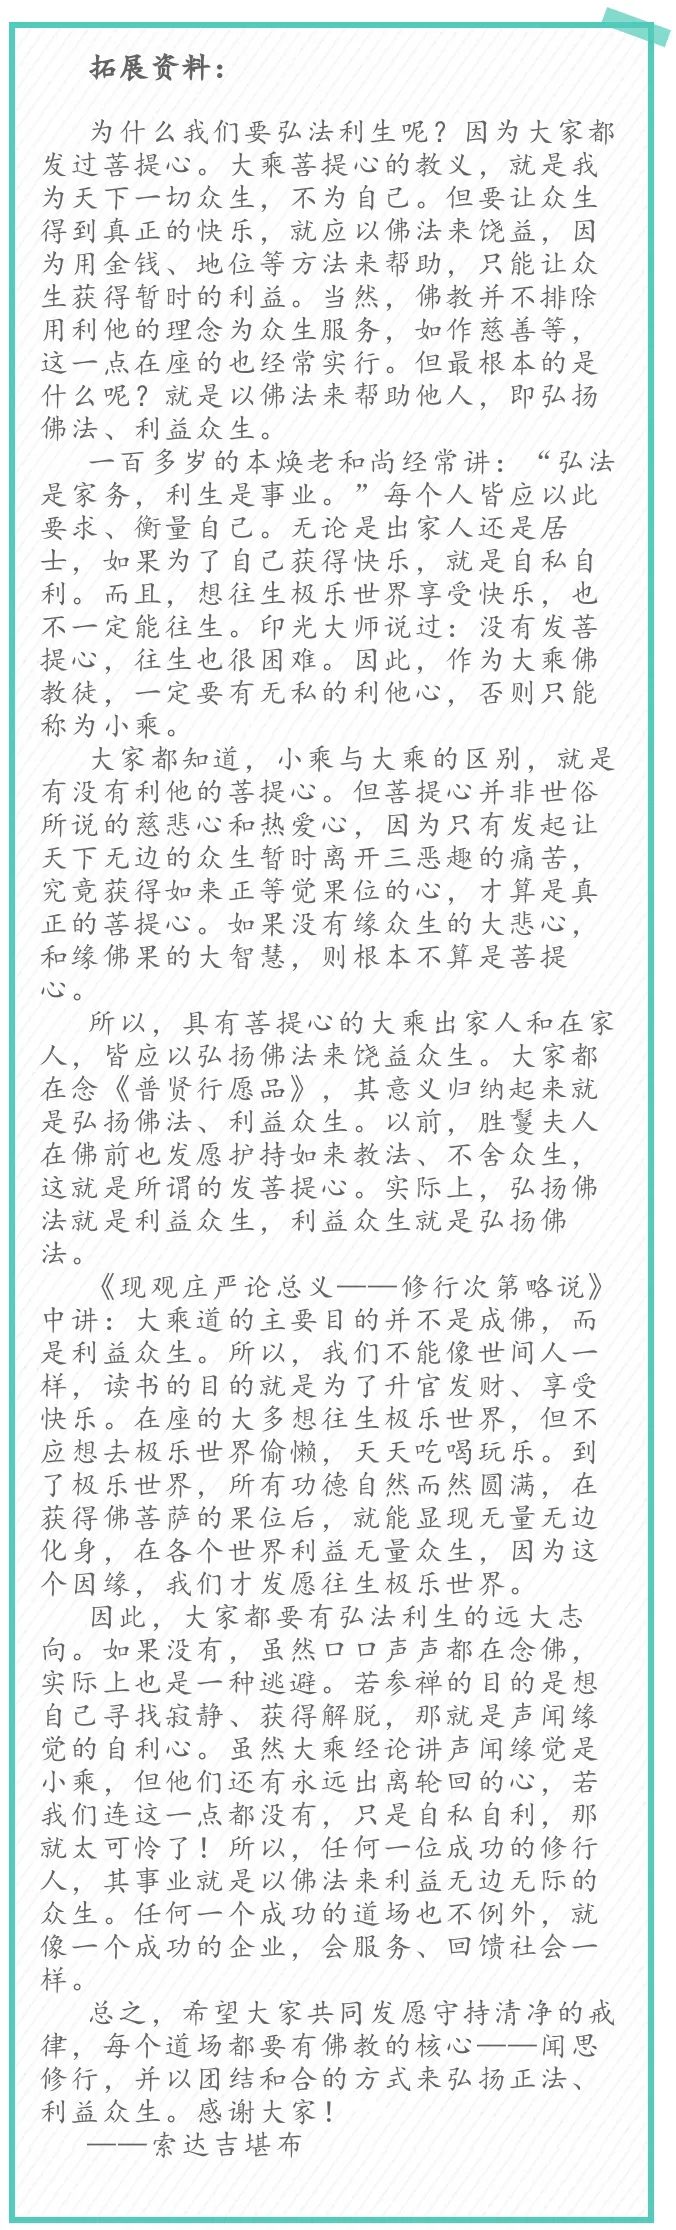 拓展资料：
为什么我们要弘法利生呢？因为大家都
发过菩提心。大乘菩提心的教义，就是我
为天下一切众生，不为自己。但要让众生
得到真正的快乐，就应以佛法来饶益，因
为用金钱、地位等方法来帮助，只能让众
生获得暂时的利益。当然，佛教并不排除
用利他的理念为众生服务，如作慈善等，
这一点在座的也经常实行。但最根本的是
什么呢？就是以佛法来帮助他人，即弘扬
佛法、利益众生。
一百多岁的本焕老和尚经常讲：“弘法
是家务，利生是事业。”每个人皆应以此
要求、衡量自己。无论是出家人还是居
士，如果为了自己获得快乐，就是自私自
利。而且，想往生极乐世界享受快乐，也
不一定能往生。印光大师说过：没有发菩
提心，往生也很困难。因此，作为大乘佛
教徒，一定要有无私的利他心，否则只能
称为小乘。
大家都知道，小乘与大乘的区别，就是
有没有利他的菩提心。但菩提心并非世俗
所说的慈悲心和热爱心，因为只有发起让
天下无边的众生暂时离开三恶趣的痛苦，
究竟获得如来正等觉果位的心，才算是真
正的菩提心。如果没有缘众生的大悲心，
和缘佛果的大智慧，则根本不算是菩提
心。
所以，具有菩提心的大乘出家人和在家
人，皆应以弘扬佛法来饶益众生。大家都
在念《普贤行愿品》，其意义归纳起来就
是弘扬佛法、利益众生。以前，胜鬘夫人
在佛前也发愿护持如来教法、不舍众生，
这就是所谓的发菩提心。实际上，弘扬佛
法就是利益众生，利益众生就是弘扬佛
法。
《现观庄严论总义——修行次第略说》
中讲：大乘道的主要目的并不是成佛，而
是利益众生。所以，我们不能像世间人一
样，读书的目的就是为了升官发财、享受
快乐。在座的大多想往生极乐世界，但不
应想去极乐世界偷懒，天天吃喝玩乐。到
了极乐世界，所有功德自然而然圆满，在
获得佛菩萨的果位后，就能显现无量无边
化身，在各个世界利益无量众生，因为这
个因缘，我们才发愿往生极乐世界。
因此，大家都要有弘法利生的远大志
向。如果没有，虽然口口声声都在念佛，
实际上也是一种逃避。若参禅的目的是想
自己寻找寂静、获得解脱，那就是声闻缘
觉的自利心。虽然大乘经论讲声闻缘觉是
小乘，但他们还有永远出离轮回的心，若
我们连这一点都没有，只是自私自利，那
就太可怜了！所以，任何一位成功的修行
人，其事业就是以佛法来利益无边无际的
众生。任何一个成功的道场也不例外，就
像一个成功的企业，会服务、回馈社会一
样。
总之，希望大家共同发愿守持清净的戒
律，每个道场都要有佛教的核心——闻思
修行，并以团结和合的方式来弘扬正法、
利益众生。感谢大家！
——索达吉堪布